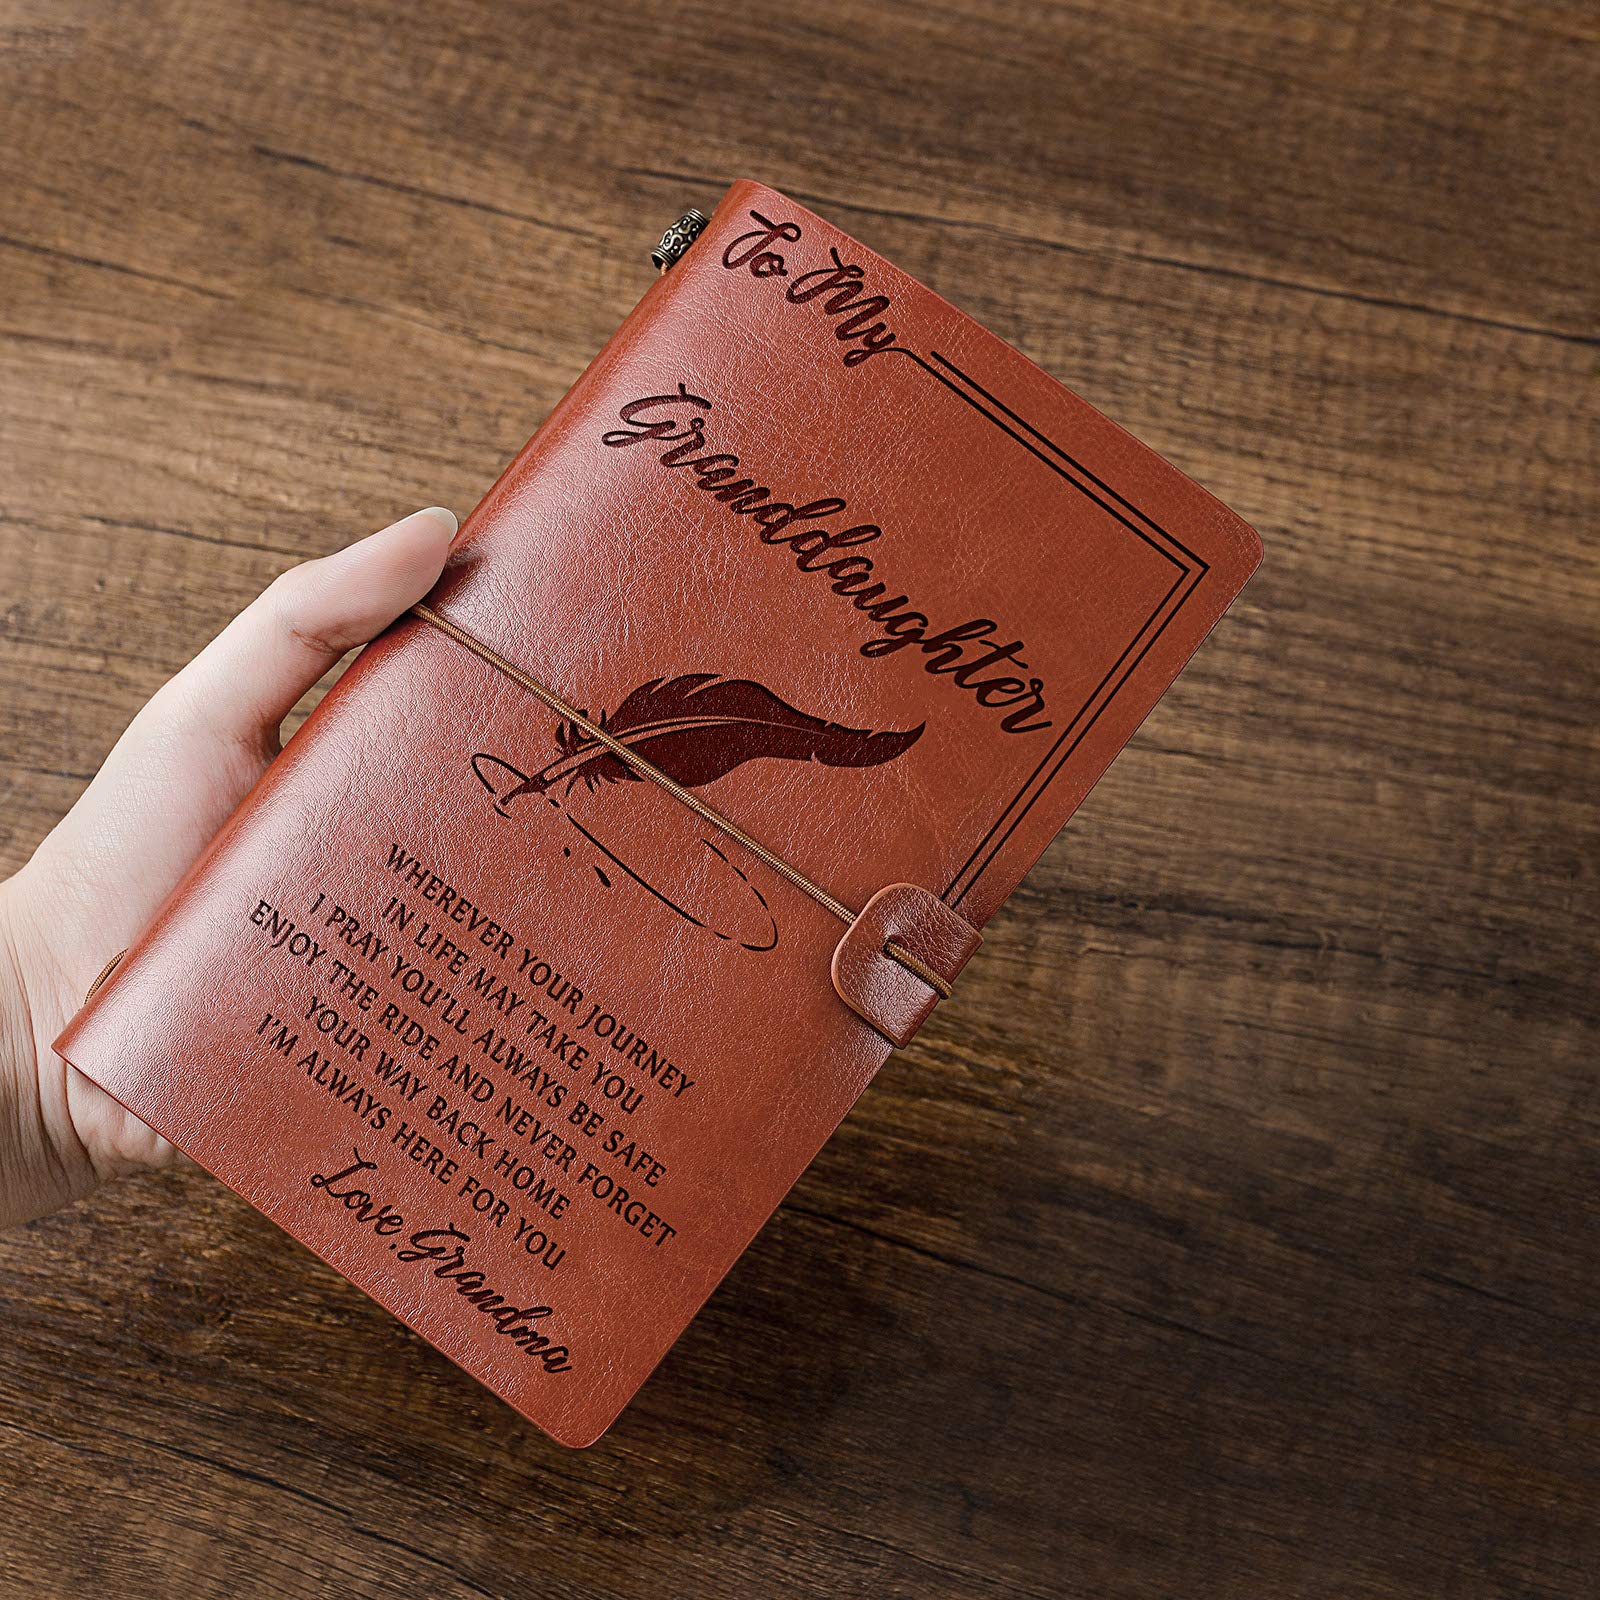 To My
Granddaughter
WHEREVER YOUR JOURNEY
IN LIFE MAY TAKE YOU
I PRAY YOU'LL ALWAYS BE SAFE
ENJOY THE RIDE AND NEVER FORGET
YOUR WAY BACK HOME
I'M ALWAYS HERE FOR YOU
Love, Grandma